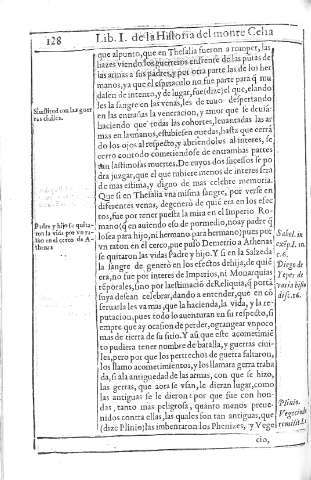 128 Lib. I. de la Historia del monte Celia
que al punto, que en Thesalia fueron a romper, las
hazes viendo los guerreros enfrente de las puntas de
las armas a sus padres, y por otra parte las de los her
manos, ya que el espectaculo no fue parte para q̃ mu
dasen de intento, y de lugar, fue (dize) el que, elando
les la sangre en las venas, les de tuuo despertando
en las entrañas la veneracion, y amor que se deuia:
haciendo que todas las cohortes, leuantadas las ar
mas en las manos, estubiesen quedas, hasta que cerrã
do los ojos al respecto, y abriendolos al interes, se
cerro
tan lastimosas muertes. De cuyos dos sucessos se po
dra juzgar, que el que tubiere menos de interes sera
de mas estima, y digno de mas celebre memoria.
Que si en Thesalia vna misma sangre, por verse en
diferentes venas, degenerò de quie era en los efec
tos, fue por tener puesta la mira en el Imperio Ro-
mano (q̃ en auiendo esto de por medio, no ay padre q̃
lo sea para hijo, ni hermano para hermano) pues por
vn raton en el cerco, que puso Demetrio a Athenas
se quitaron las vidas Padre y hijo. Y si en la Salzeda
la sangre de generò en los efectos de hija, de quiẽ
era, no fue por interes de Imperios, ni Monarquias
tẽporales, sino por la estimaciõ de Reliquia, q̃ por tã
suya desean celebrar, dando a entender, que en cõ
seruarla les va mas, que la hacienda, la vida, y la re-
putacion, pues todo lo auenturan en su respecto, si
empre que ay ocasion de perder, o grangear vn poco
mas de tierra de su sitio. Y asi que este acometimiẽ
to pudiera tener nombre de batalla, y guerras ciui-
les, pero por que los pertrechos de guerra faltaron,
los llamo acometimientos, y los llamara gerra traba
da, si a la antiguedad de las armas, con que se hizo,
las gerras, que aora se vsan, le dieran lugar, como
las antiguas se le dieron: por que fue con hon-
das, tanto mas peligrosa, quanto menos preue-
nidos contra ellas, las quales son tan antiguas, que
(dize Plinio) las imbentaron los Phenizes, y Vege
cio,
Padre y hijo se quita-
ron la vida por vn ra-
ton en el cerco de A-
thenas
Sabel. in
c. 6.
Diego de
Yepes de
varia histo
disc. 16.
Plinio.
Vegecio de